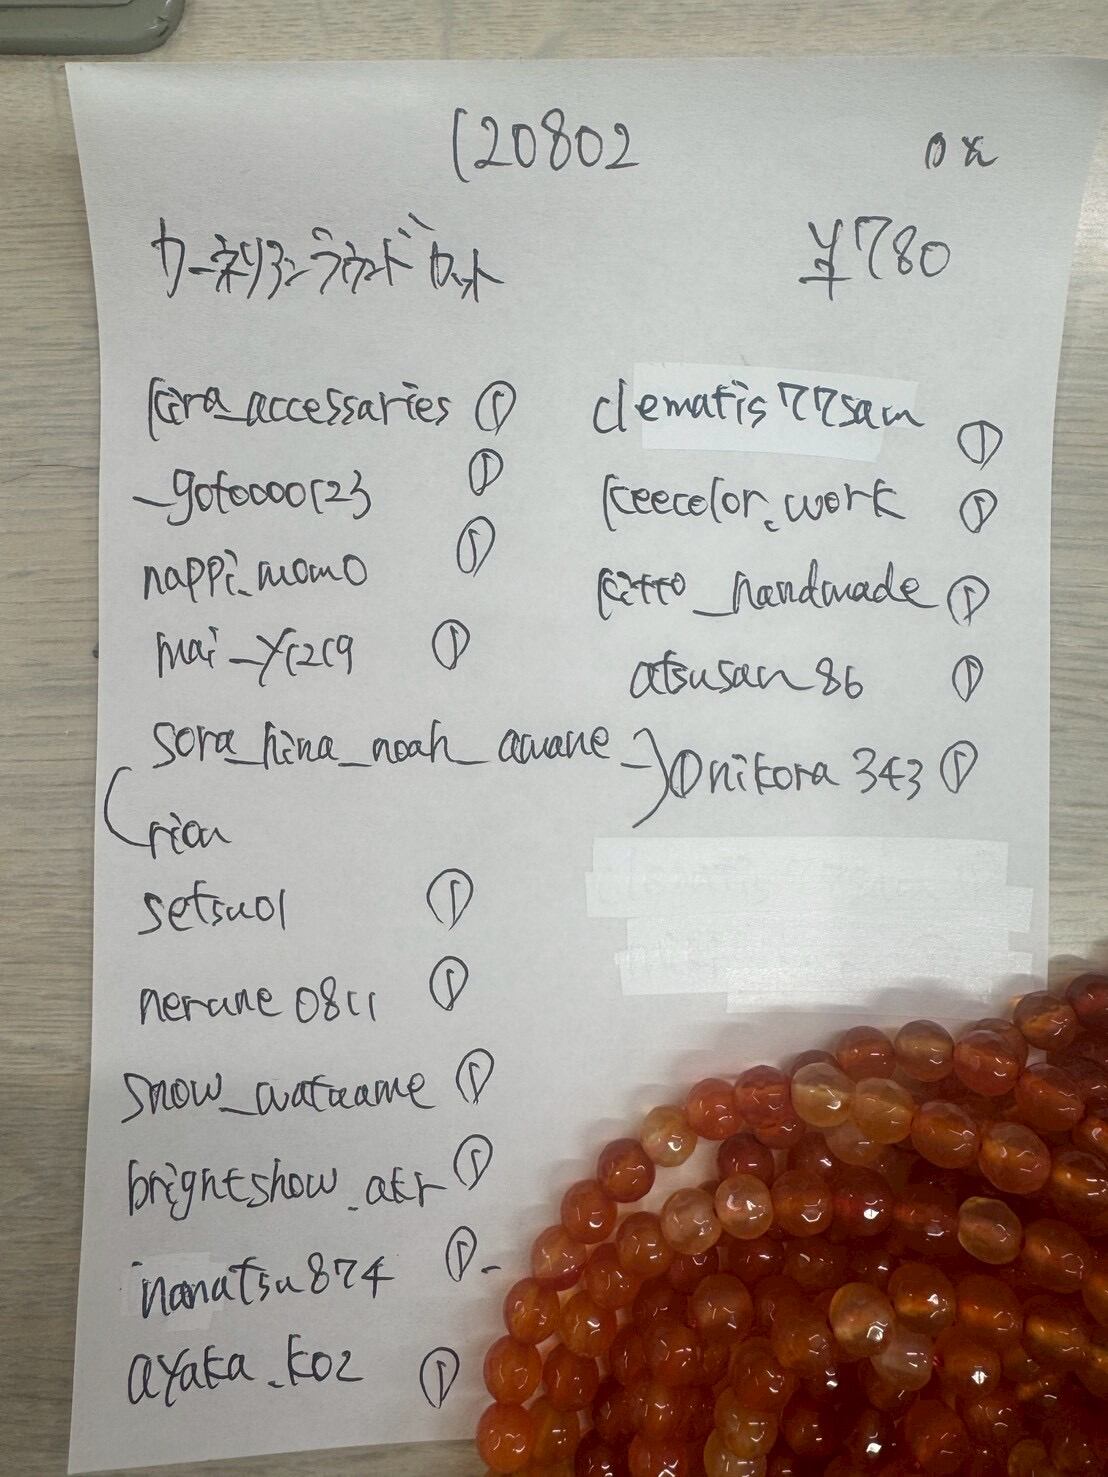 120802
0x
カーネリアンラウンドカット
¥780
kira_accessaries ①
_gotoooo123 ①
nappi.momo ①
mai_y1219 ①
sora_hina_noah_amane_
rion ①
setsu01 ①
nerune0811 ①
snow_wataame ①
brightshow.akr ①
nanatsu874 ①
ayaka.k02 ①
clematis77sam ①
keecolor.work ①
kitto_handmade ①
atsusan86 ①
nikora343 ①